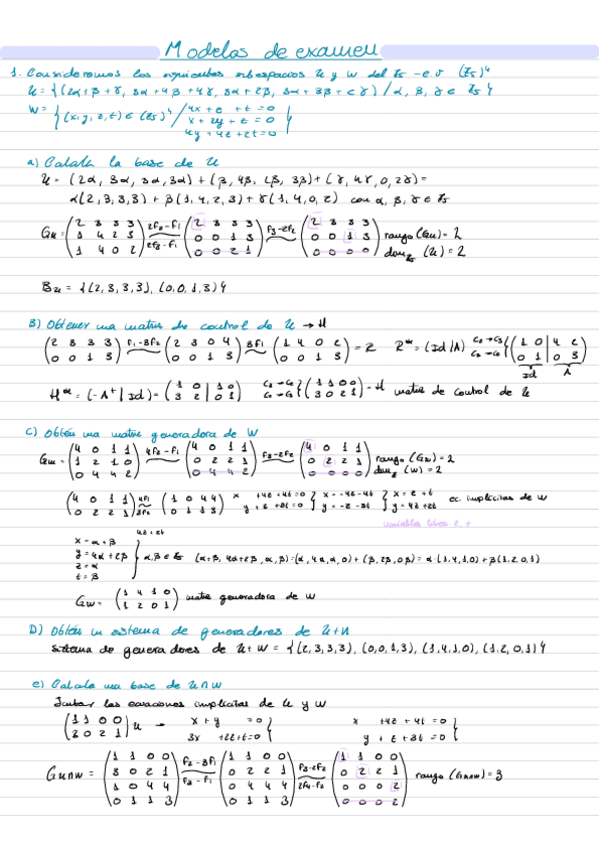 Modelos de examen
1. Consideramos los siguientes subespacios U y W del Z5 - e.v (Z5)^4
U = {(2α+β+γ, 3α+4β+4γ, 3α+2β, 3α+3β+2γ) / α, β, γ ∈ Z5}
W = {(x,y,z,t) ∈ (Z5)^4 / 4x+z+t=0
x+2y+z=0
4y+4z+2t=0}
a) Calcula la base de U
U = (2α, 3α, 3α, 3α) + (β, 4β, 2β, 3β) + (γ, 4γ, 0, 2γ) =
α(2,3,3,3) + β(1,4,2,3) + γ(1,4,0,2) con α, β, γ ∈ Z5
Gu = (2 3 3 3 / 1 4 2 3 / 1 4 0 2) 2F2-F1 2F3-F1 (2 3 3 3 / 0 0 1 3 / 0 0 2 1) F3-2F2 (2 3 3 3 / 0 0 1 3 / 0 0 0 0) rango (Gu) = 2
dim Z5 (U) = 2
Bu = {(2,3,3,3), (0,0,1,3)}
B) Obtener una matriz de control de U → H
(2 3 3 3 / 0 0 1 3) F1-3F2 (2 3 0 4 / 0 0 1 3) 3F1 (1 4 0 2 / 0 0 1 3) = R R* = (Id|A) (1 0 | 4 2 / 0 1 | 0 3)
Id A
H* = (-A^t | Id) = (1 0 | 1 0 / 3 2 | 0 1) (1 1 0 0 / 3 0 2 1) = H matriz de control de U
C) Obtén una matriz generadora de W
Gw = (4 0 1 1 / 1 2 1 0 / 0 4 4 2) 4F2-F1 (4 0 1 1 / 0 2 2 1 / 0 4 4 2) F3-2F2 (4 0 1 1 / 0 2 2 1 / 0 0 0 0) rango (Gw) = 2
dim Z5 (W) = 2
(4 0 1 1 / 0 2 2 1) 4F1 3F2 (1 0 4 4 / 0 1 1 3) x +4z+4t=0 y+z+3t=0 } x=-4z-4t y=-z-3t } x=z+t y=4z+2t ec. implícitas de W
variables libres z, t
4z+2t
x=α+β
y=4α+2β
z=α
t=β
α,β ∈ Z5 (α+β, 4α+2β, α, β) = (α, 4α, α, 0) + (β, 2β, 0, β) = α·(1,4,1,0) + β(1,2,0,1)
Gw = (1 4 1 0 / 1 2 0 1) matriz generadora de W
D) Obtén un sistema de generadores de U+W
Sistema de generadores de U+W = {(2,3,3,3), (0,0,1,3), (1,4,1,0), (1,2,0,1)}
e) Calcula una base de U∩W
Juntar las ecuaciones implícitas de U y W
(1 1 0 0 / 3 0 2 1) U → x+y =0 x +4z+4t=0
3x +2z+t=0 y+z+3t=0
GU∩W = (1 1 0 0 / 3 0 2 1 / 1 0 4 4 / 0 1 1 3) F2-3F1 F3-F1 (1 1 0 0 / 0 2 2 1 / 0 4 4 4 / 0 1 1 3) F3-2F2 2F4-F2 (1 1 0 0 / 0 2 2 1 / 0 0 0 2 / 0 0 0 2) rango (GU∩W) = 3